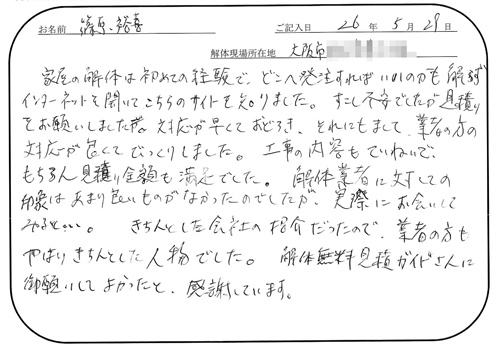 お名前 篠原 裕喜 ご記入日 26年5月29日
解体現場所在地 大阪市
家屋の解体は初めての経験で、どこへ発注すればいいのかも解らず
インターネットを開いてこちらのサイトを知りました。すこし不安でしたが見積り
をお願いしました所、対応が早くておどろき、それにもまして、業者の方の
対応が良くてびっくりしました。工事の内容もていねいで、
もちろん見積り金額も満足でした。解体業者に対しての
印象はあまり良いものがなかったのでしたが、実際にお会いして
みると…。きちんとした会社の紹介だったので、業者の方も
やはりきちんとした人物でした。解体無料見積ガイドさんに
御願いしてよかったと、感謝しています。